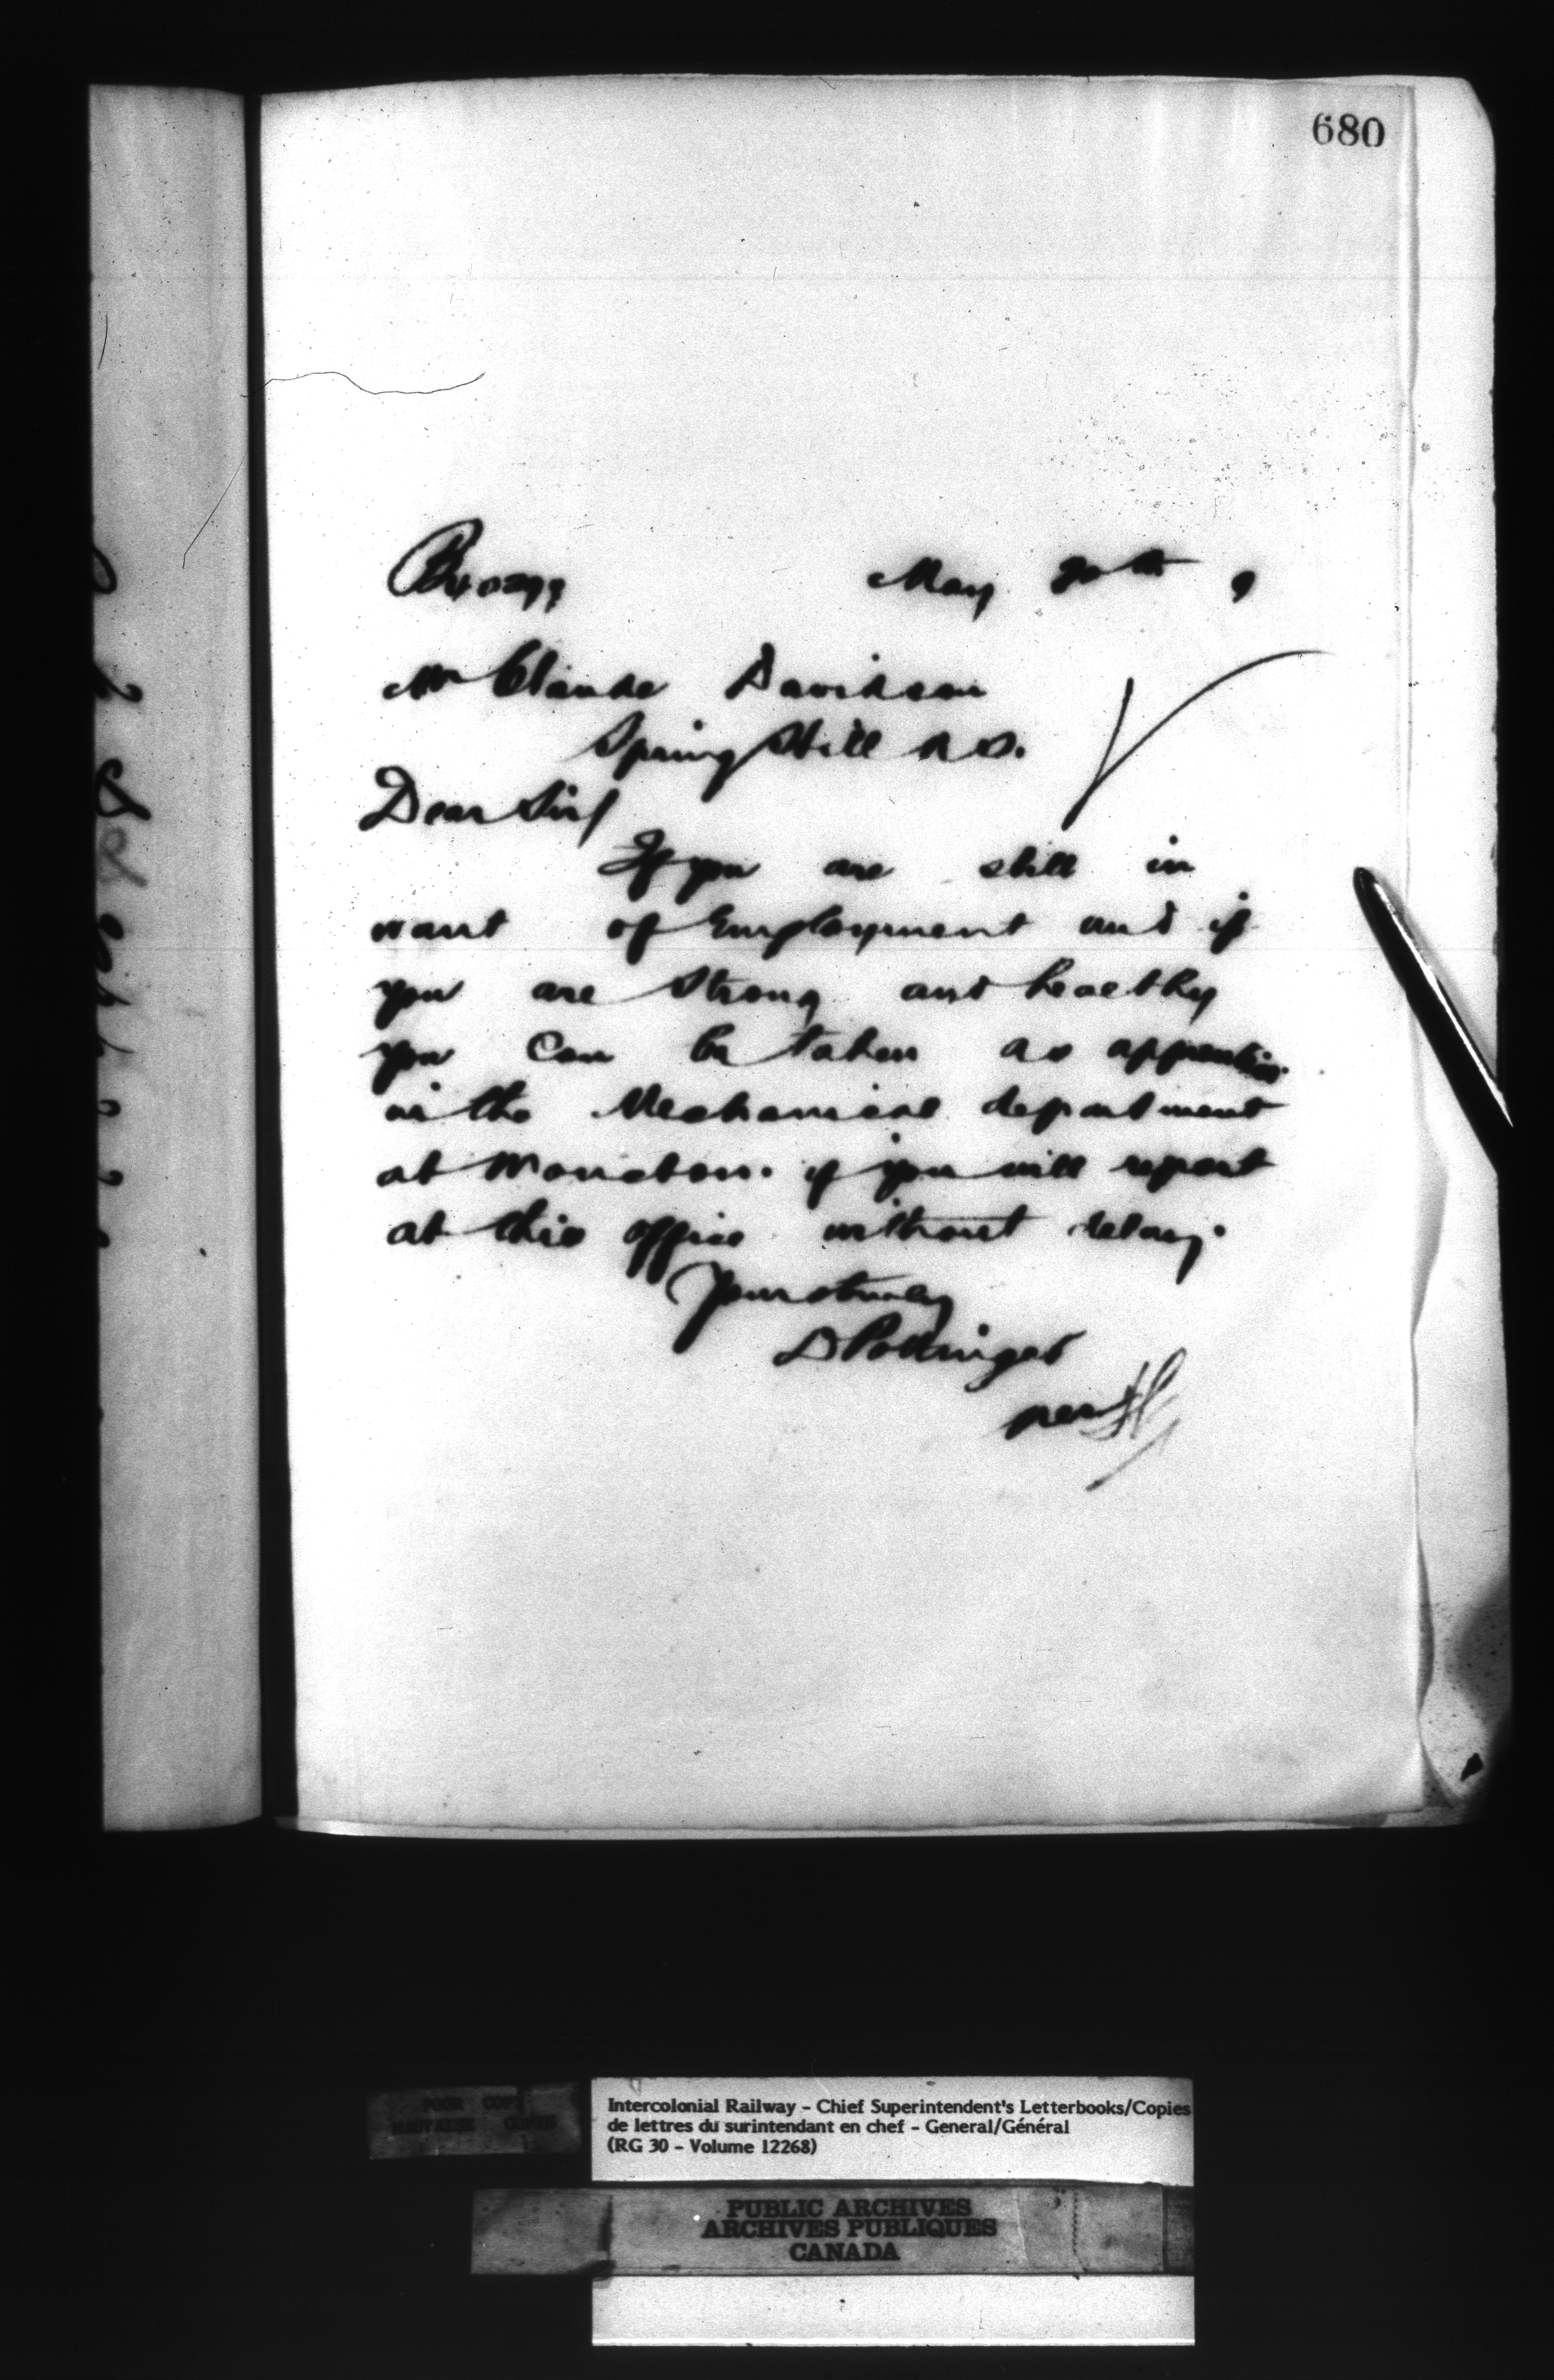 680
May 20th 9
Mr Claude Davidson
Spring Hill N S.
Dear Sir/
If you are still in
want of Employment and if
you are Strong and healthy
you can be taken as apprentice
in the Mechanical department
at Moncton. if you will report
at this office without delay.
Yours truly
D Pottinger
per
POOR COPY
MAUVAISE COPIE
Intercolonial Railway - Chief Superintendent's Letterbooks/Copies
de lettres du surintendant en chef - General/Général
(RG 30 - Volume 12268)
PUBLIC ARCHIVES
ARCHIVES PUBLIQUES
CANADA